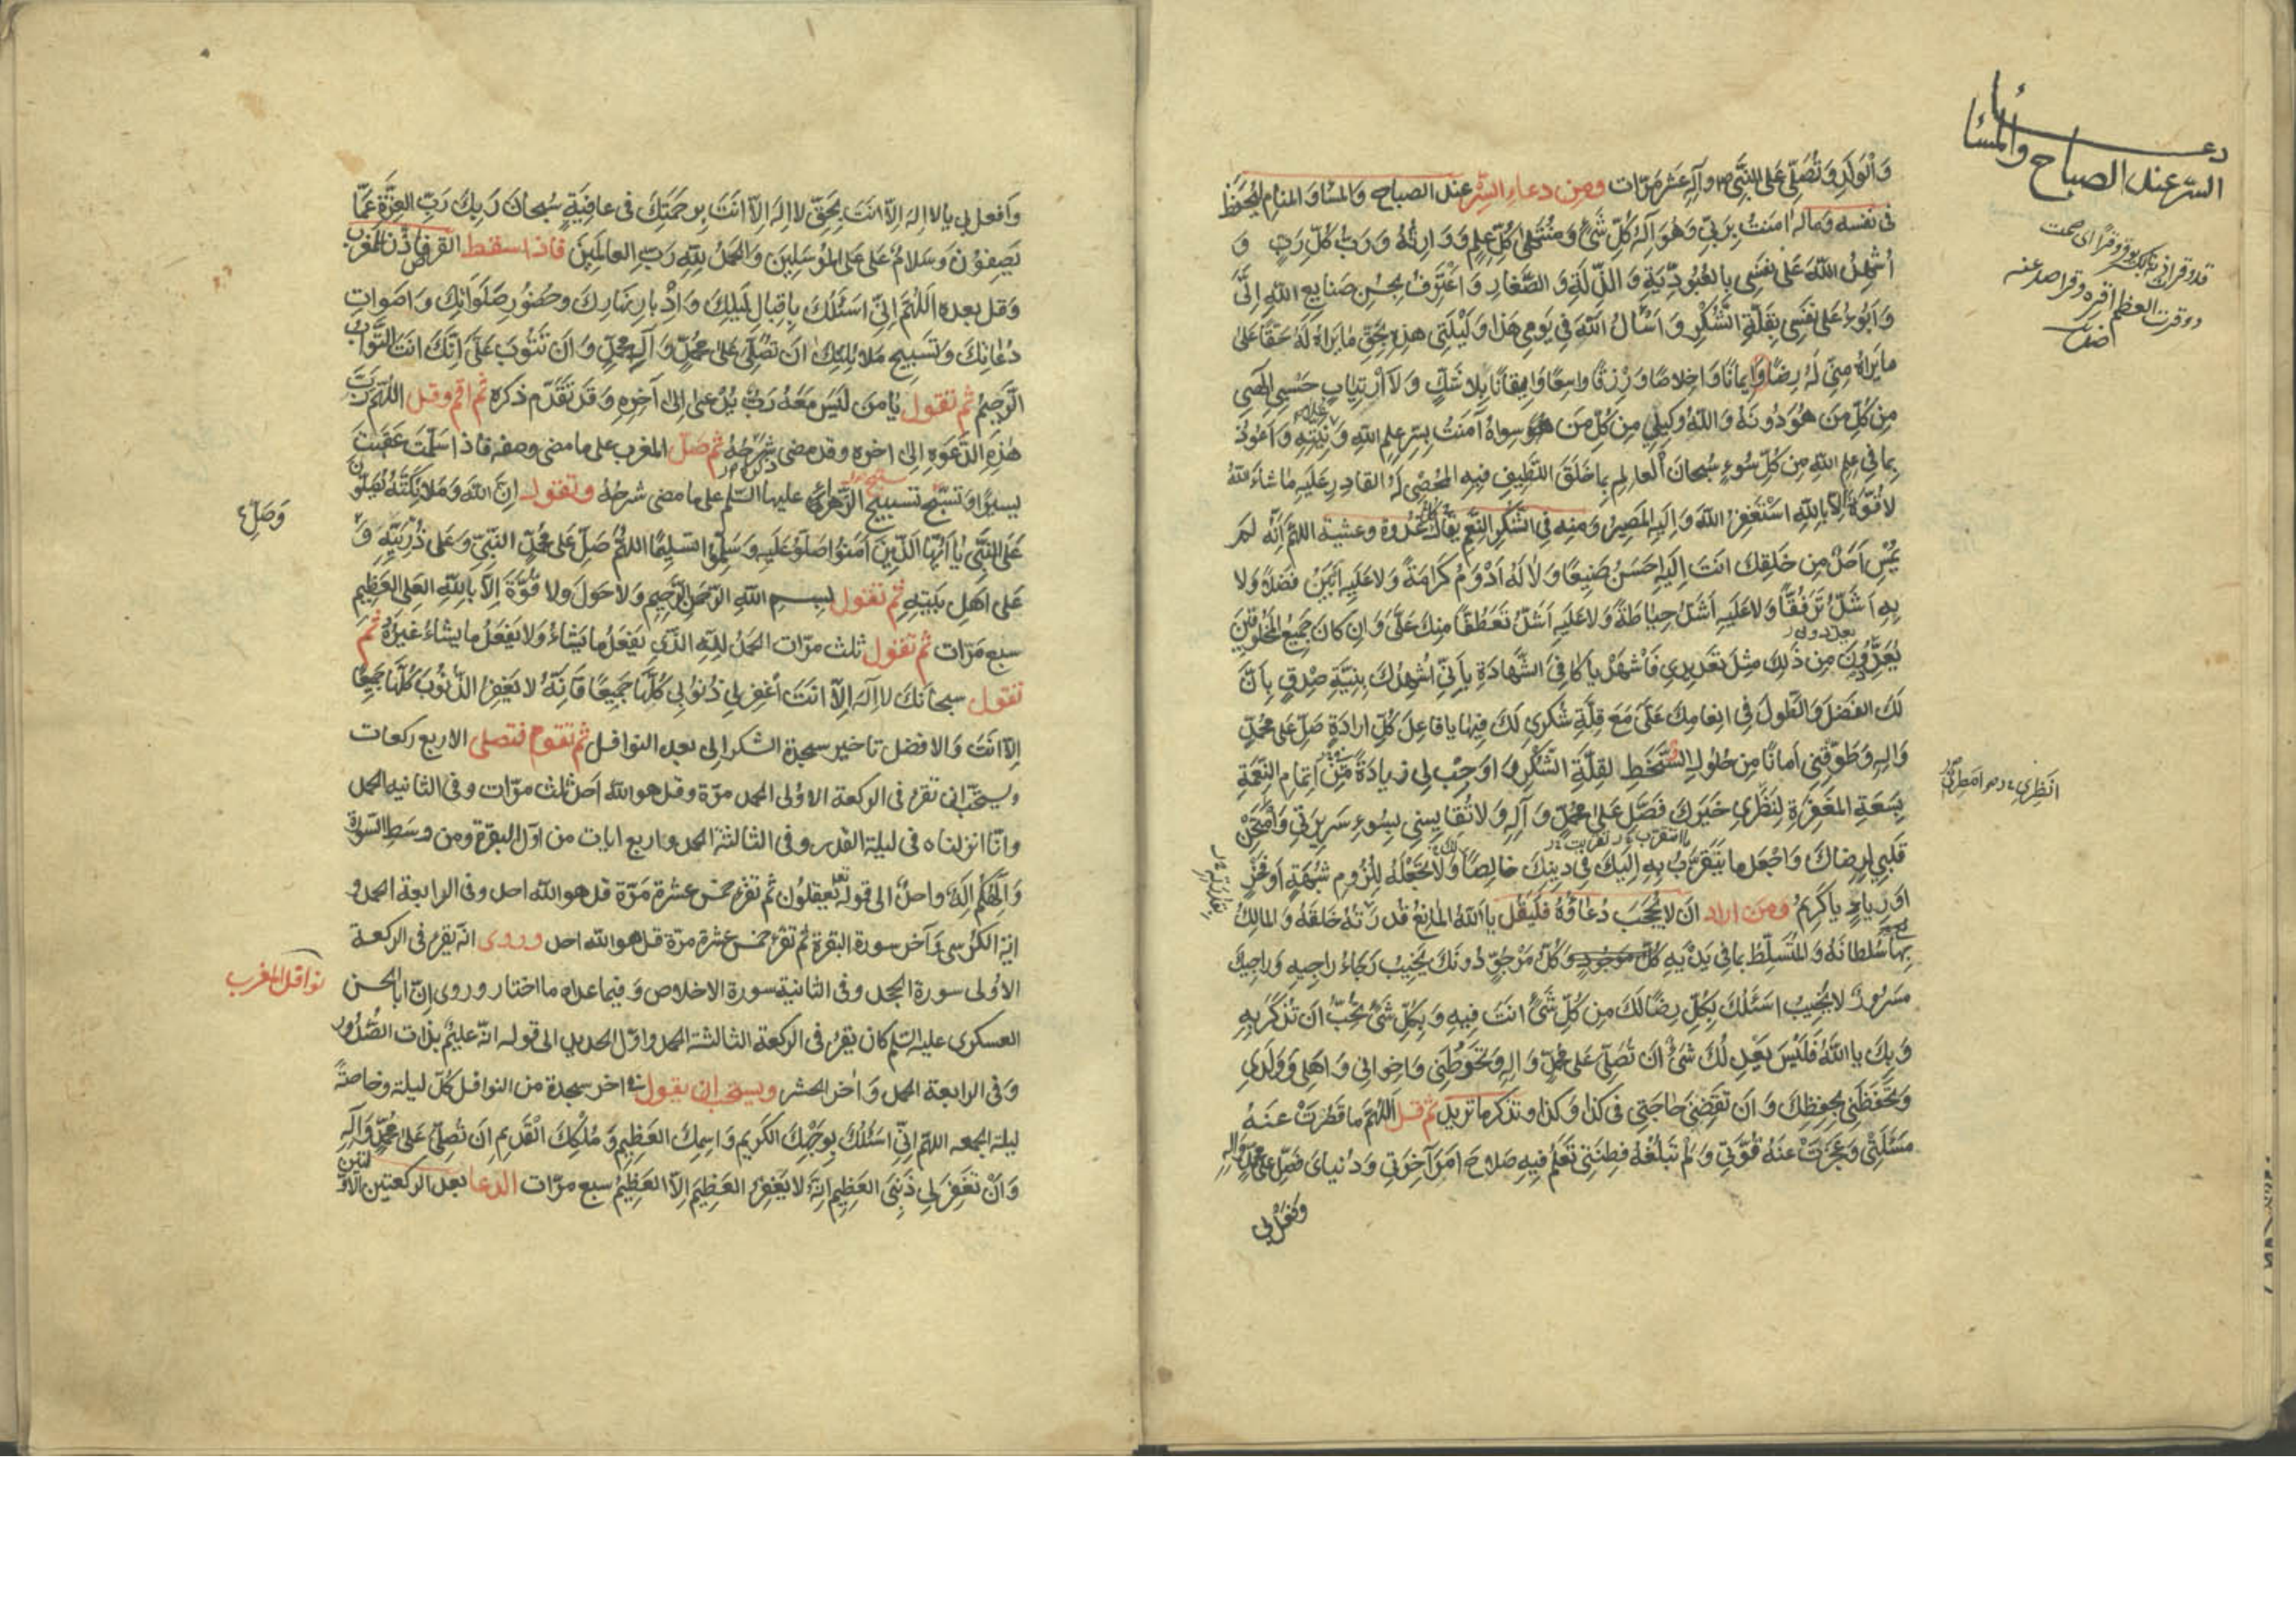 دعاء
السر عند الصباح والمساء
وَالْوَلَدِ وَتُصَلِّي عَلَى النَّبِيِّ ص وآلِهِ عشر مَرّات ومن دعاء السِّر عند الصباح والمساء والمنام ليُحفَظ
في نفسه وماله امَنْتُ بِرَبّي وَهُوَ اِلهُ كُلِّ شَيْءٍ وَمُنْتَهى كُلِّ عِلْمٍ وَوَارِثُهُ وَرَبُّ كُلِّ رَبٍّ وَ
اُشْهِدُ اللهَ عَلى نَفْسي بالعُبُودِيَّةِ وَالذِّلَّةِ وَالصَّغارِ وَاَعْتَرِفُ بِحُسْنِ صَنايِعِ اللهِ اِلَيَّ
وَاَبُوءُ عَلى نَفْسي بِقِلَّةِ الشُّكْرِ وَاَسْأَلُ اللهَ في يَوْمي هذا وَلَيْلَتي هذِهِ بِحَقِّ ما يَراهُ لَهُ حَقًّا عَلى
ما يَراهُ مِنّي لَهُ رِضًا وَايمانًا وَاِخلاصًا وَرِزْقًا واسِعًا وَايقانًا بِلا شَكٍّ وَلا اْرتِيابٍ حَسْبي اِلهي
مِن كُلِّ مَنْ هُوَ دُونَهُ وَاللهُ وَكيلي مِن كُلِّ مَن سِواهُ آمَنْتُ بِسِرِّ عِلْمِ اللهِ وَعَلانِيَتِهِ وَاَعُوذُ
بِما في عِلْمِ اللهِ مِن كُلِّ سُوءٍ سُبحانَ العالِمِ بِما خَلَقَ اللَّطيفِ فيهِ المُحْصي لَهُ القادِرِ عَلَيهِ ما شاءَ اللهُ
لا قُوَّةَ اِلّا بِاللهِ اَسْتَغْفِرُ اللهَ وَاِلَيهِ المَصيرُ ومنه في الشُّكرِ النِّعَمِ يقال كل غُدوة وعشية اللهُمَّ اِنَّهُ لَمْ
يُمْسِ اَحَدٌ مِن خَلقِكَ اَنْتَ اِلَيهِ اَحسَنُ صَنيعًا وَلا لَهُ اَدْوَمُ كَرامَةً وَلا عَلَيهِ اَبْيَنُ فَضلًا وَلا
بِهِ اَشَدُّ تَرَفُّقًا وَلا عَلَيهِ اَشَدُّ حِياطَةً وَلا عَلَيهِ اَشَدُّ تَعَطُّفًا مِنكَ عَلَيَّ وَاِن كانَ جَميعُ المَخلُوقينَ
يُعَدِّدُونَ مِن ذلِكَ مِثلَ تَعديدي فَاشهَد يا كافِيَ الشَّهادَةِ بِاَنّي اُشهِدُكَ بِنِيَّةِ صِدْقٍ بِاَنَّ
لَكَ الفَضلَ وَالطَّولَ في اِنعامِكَ عَلَيَّ مَعَ قِلَّةِ شُكري لَكَ فيها يا فاعِلَ كُلِّ ارادَةٍ صَلِّ عَلى مُحَمَّدٍ
وَالِهِ وَطَوِّقْني اَمانًا مِن حُلُولِ السَّخَطِ لِقِلَّةِ الشُّكرِ وَاَوْجِبْ لي زِيادَةً مِن اِتمامِ النِّعمَةِ
بِسَعَةِ المَغفِرَةِ لِنَظَري خَيرَكَ فَصَلِّ عَلى مُحَمَّدٍ وَآلِهِ وَلا تُقايِسني بِسُوءِ سَريرَتي وَامتَحِنْ
قَلبي لِرِضاكَ وَاجعَل ما يُتَقَرَّبُ بِهِ اِلَيكَ في دينِكَ خالِصًا وَلا تَجعَلهُ لِلُزُومِ شُبهَةٍ اَو فَخرٍ
اَو رِياءٍ يا كَريمُ ومن اراد اَن لا يُحجَبَ دُعاؤُهُ فَليَقُل يا اَللهُ المانِعُ قُدرَتُهُ خَلقَهُ وَالمالِكُ
بِها سُلطانَهُ وَالمُتَسَلِّطُ بِما في يَدَيهِ كُلُّ مَرجُوٍّ دُونَكَ يَخيبُ رَجاءُ راجيهِ وَراجيكَ
مَسرُورٌ لا يَخيبُ اَسئَلُكَ بِكُلِّ رِضًا لَكَ مِن كُلِّ شَيءٍ اَنتَ فيهِ وَبِكُلِّ شَيءٍ تُحِبُّ اَن تُذكَرَ بِهِ
وَبِكَ يا اَللهُ فَلَيسَ يَعدِلُكَ شَيءٌ اَن تُصَلِّيَ عَلى مُحَمَّدٍ وَالِهِ وَتَحُوطَني وَاِخواني وَاَهلي وَوَلَدي
وَتَحفَظَني بِحِفظِكَ وَاَن تَقضِيَ حاجَتي في كَذا وَكَذا وتذكر ما تريد ثم قل اَللهُمَّ ما قَصُرَت عَنهُ
مَسئَلَتي وَعَجَزَت عَنهُ قُوَّتي وَلَم تَبلُغهُ فِطنَتي تَعلَمُ فيهِ صَلاحَ اَمرِ آخِرَتي وَدُنيايَ فَصَلِّ عَلى مُحَمَّدٍ وَالِهِ
وافعل بي
وَافعل بي يا لا اِلهَ اِلّا اَنتَ بِحَقِّ لا اِلهَ اِلّا اَنتَ بِرَحمَتِكَ في عافِيَةٍ سُبحانَ رَبِّكَ رَبِّ العِزَّةِ عَمّا
يَصِفُونَ وَسَلامٌ عَلَى المُرسَلينَ وَالحَمدُ لِلّهِ رَبِّ العالَمينَ فاذا سقط القرص فاذّن للمغرب
وَقل بعده اَللهُمَّ اِنّي اَسئَلُكَ بِاِقبالِ لَيلِكَ وَاِدبارِ نَهارِكَ وَحُضُورِ صَلَواتِكَ وَاَصواتِ
دُعاتِكَ وَتَسبيحِ مَلائِكَتِكَ اَن تُصَلِّيَ عَلى مُحَمَّدٍ وَآلِ مُحَمَّدٍ وَاَن تَتُوبَ عَلَيَّ اِنَّكَ اَنتَ التَّوّابُ
الرَّحيمُ ثم تقول يا مَن لَيسَ مَعَهُ رَبٌّ يُدعى اِلى آخِرِهِ وَقد تَقَدَّم ذكره ثم اقم وقل اللهُمَّ رَبَّ
هذِهِ الدَّعوَةِ اِلى اخره وقد مضى شرحُهُ ثم صَلِّ المغرب على ما مضى وصفه فاذا سلّمت عَقَّبتَ
يسيرًا وتسبّح تسبيح الزَّهراء عليها السّلم على ما مضى شرحُهُ وتقول اِنَّ اللهَ وَمَلائِكَتَهُ يُصَلُّونَ
وَصَلِّ
عَلَى النَّبِيِّ يا اَيُّهَا الَّذينَ آمَنُوا صَلُّوا عَلَيهِ وَسَلِّمُوا تَسليمًا اللهُمَّ صَلِّ عَلى مُحَمَّدٍ النَّبِيِّ وَعَلى ذُرِّيَّتِهِ وَ
عَلى اَهلِ بَيتِهِ ثم تقول بِسمِ اللهِ الرَّحمنِ الرَّحيمِ وَلا حَولَ وَلا قُوَّةَ اِلّا بِاللهِ العَلِيِّ العَظيمِ
سبع مَرّات ثم تقول ثلث مرّات الحَمدُ لِلّهِ الَّذي يَفعَلُ ما يَشاءُ وَلا يَفعَلُ ما يَشاءُ غَيرُهُ ثم
تقول سبحانَكَ لا اِلهَ اِلّا اَنتَ اغفِر لي ذُنُوبي كُلَّها جَميعًا فَاِنَّهُ لا يَغفِرُ الذُّنُوبَ كُلَّها جَميعًا
اِلّا اَنتَ وَالافضل تاخير سجدة الشكر الى بعد النوافل ثم تقوم فتصلي الاربع ركعات
ويستحبّ ان تقرء في الركعة الاولى الحمد مرّة وقل هو الله اَحد ثلث مرّات وفي الثانيه الحمد
وانّا انزلناه في ليلة القدر وفي الثالثة الحمد واربع ايات من اوّل البقرة ومن وسط السّورة
وَاِلهُكُم اِلهٌ واحدٌ الى قوله يَعقِلُون ثم تقرء خمس عشرة مَرّة قل هو الله احد وفي الرابعة الحمد و
اية الكرسي وَآخر سورة البقرة ثم تقرء خمس عشرة مرّة قل هو الله احد وروى انّه يقرء في الركعة
نوافل المغرب
الاوُلى سورة الجحد وفي الثانية سورة الاخلاص وَفيما عداه ما اختار وروى انّ ابا الحسن
العسكري عليه السّلم كان يقرء في الركعة الثالثة الحمد واوّل الحديد الى قوله انّه عليمٌ بذات الصُّدُور
وَفي الرابعة الحمد وَاخر الحشر ويستحب ان يقول في اخر سجدة من النوافل كلّ ليلة وخاصةً
ليلة الجمعه اللهُمَّ اِنّي اَسئَلُكَ بِوَجهِكَ الكَريمِ وَاسمِكَ العَظيمِ وَمُلكِكَ القَديمِ اَن تُصَلِّيَ عَلى مُحَمَّدٍ وَآلِهِ
وَاَن تَغفِرَ لي ذَنبِيَ العَظيمَ اِنَّهُ لا يَغفِرُ العَظيمَ اِلّا العَظيمُ سبع مرّات الدعا بعد الركعتين الاولتين